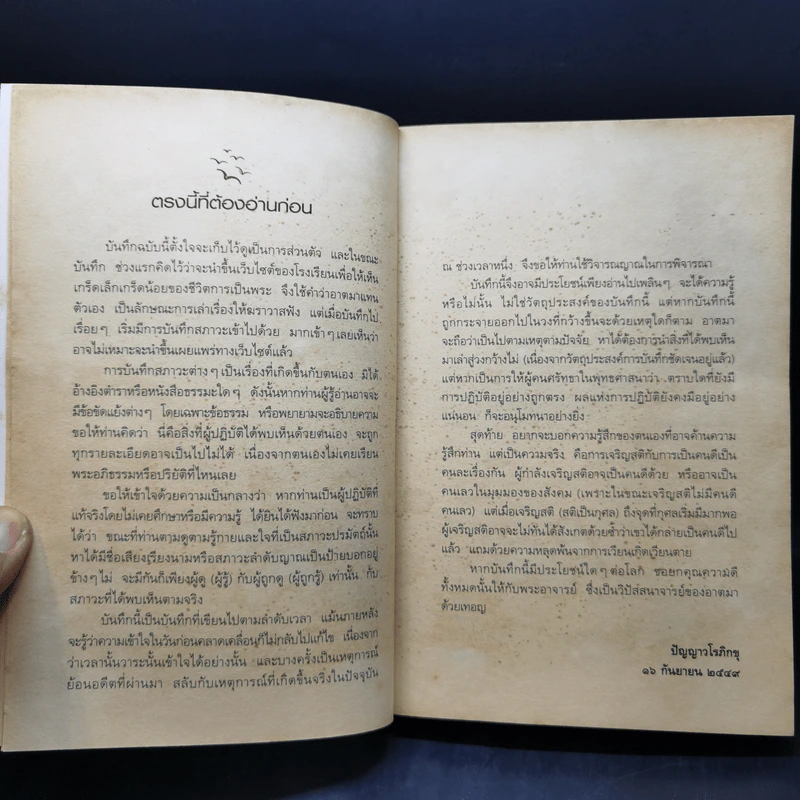 ตรงนี้ที่ต้องอ่านก่อน
บันทึกฉบับนี้ตั้งใจจะเก็บไว้ดูเป็นการส่วนตัว และในขณะ
บันทึก ช่วงแรกคิดไว้ว่าจะนำขึ้นเว็บไซต์ของโรงเรียนเพื่อให้เห็น
เกร็ดเล็กเกร็ดน้อยของชีวิตการเป็นพระ จึงใช้คำว่าอาตมาแทน
ตัวเอง เป็นลักษณะการเล่าเรื่องให้ฆราวาสฟัง แต่เมื่อบันทึกไป
เรื่อยๆ เริ่มมีการบันทึกสภาวะเข้าไปด้วย มากเข้าๆ เลยเห็นว่า
อาจไม่เหมาะจะนำขึ้นเผยแพร่ทางเว็บไซต์แล้ว
การบันทึกสภาวะต่างๆ เป็นเรื่องที่เกิดขึ้นกับตนเอง มิได้
อ้างอิงตำราหรือหนังสือธรรมะใดๆ ดังนั้นหากท่านผู้รู้อ่านอาจจะ
มีข้อขัดแย้งต่างๆ โดยเฉพาะข้อธรรม หรือพยายามจะอธิบายความ
ขอให้ท่านคิดว่า นี่คือสิ่งที่ผู้ปฏิบัติได้พบเห็นด้วยตนเอง จะถูก
ทุกรายละเอียดอาจเป็นไปไม่ได้ เนื่องจากตนเองไม่เคยเรียน
พระอภิธรรมหรือปริยัติที่ไหนเลย
ขอให้เข้าใจด้วยความเป็นกลางว่า หากท่านเป็นผู้ปฏิบัติที่
แท้จริงโดยไม่เคยศึกษาหรือมีความรู้ ได้ยินได้ฟังมาก่อน จะทราบ
ได้ว่า ขณะที่ท่านตามดูตามรู้กายและใจที่เป็นสภาวะปรมัตถ์นั้น
หาได้มีชื่อเสียงเรียงนามหรือสภาวะลำดับญาณเป็นป้ายบอกอยู่
ข้างๆ ไม่ จะมีกันก็เพียงผู้ดู (ผู้รู้) กับผู้ถูกดู (ผู้ถูกรู้) เท่านั้น กับ
สภาวะที่ได้พบเห็นตามจริง
บันทึกนี้เป็นบันทึกที่เขียนไปตามลำดับเวลา แม้นภายหลัง
จะรู้ว่าความเข้าใจในวันก่อนคลาดเคลื่อนก็ไม่กลับไปแก้ไข เนื่องจาก
ว่าเวลานั้นวาระนั้นเข้าใจได้อย่างนั้น และบางครั้งเป็นเหตุการณ์
ย้อนอดีตที่ผ่านมา สลับกับเหตุการณ์ที่เกิดขึ้นจริงในปัจจุบัน
ณ ช่วงเวลาหนึ่ง จึงขอให้ท่านใช้วิจารณญาณในการพิจารณา
บันทึกนี้จึงอาจมีประโยชน์เพียงอ่านไปเพลินๆ จะได้ความรู้
หรือไม่นั้น ไม่ใช่วัตถุประสงค์ของบันทึกนี้ แต่หากบันทึกนี้
ถูกกระจายออกไปในวงที่กว้างขึ้นจะด้วยเหตุใดก็ตาม อาตมา
จะถือว่าเป็นไปตามเหตุตามปัจจัย หาได้ต้องการนำสิ่งที่ได้พบเห็น
มาเล่าสู่วงกว้างไม่ (เนื่องจากวัตถุประสงค์การบันทึกชัดเจนอยู่แล้ว)
แต่หากเป็นการให้ผู้คนศรัทธาในพุทธศาสนาว่า ตราบใดที่ยังมี
การปฏิบัติอยู่อย่างถูกตรง ผลแห่งการปฏิบัติยังคงมีอยู่อย่าง
แน่นอน ก็จะอนุโมทนาอย่างยิ่ง
สุดท้าย อยากจะบอกความรู้สึกของตนเองที่อาจค้านความ
รู้สึกท่าน แต่เป็นความจริง คือการเจริญสติกับการเป็นคนดีเป็น
คนละเรื่องกัน ผู้กำลังเจริญสติอาจเป็นคนดีด้วย หรืออาจเป็น
คนเลวในมุมมองของสังคม (เพราะในขณะเจริญสติไม่มีคนดี
คนเลว) แต่เมื่อเจริญสติ (สติเป็นกุศล) ถึงจุดที่กุศลเริ่มมีมากพอ
ผู้เจริญสติอาจจะไม่ทันได้สังเกตด้วยซ้ำว่าเขาได้กลายเป็นคนดีไป
แล้ว แถมด้วยความหลุดพ้นจากการเวียนเกิดเวียนตาย
หากบันทึกนี้มีประโยชน์ใดๆ ต่อโลก ขอยกคุณความดี
ทั้งหมดนั้นให้กับพระอาจารย์ ซึ่งเป็นวิปัสสนาจารย์ของอาตมา
ด้วยเทอญ
ปัญญาวโรภิกขุ
๑๖ กันยายน ๒๕๔๙